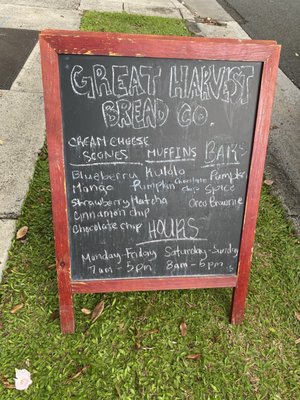 GREAT HARVEST
BREAD CO.
CREAM CHEESE
SCONES MUFFINS BARS
Blueberry Kulolo Pumpkin
Mango Pumpkin Chocolate chip Spice
Strawberry Matcha Oreo Brownie
Cinnamon chip
Chocolate chip
HOURS
Monday-Friday Saturday-Sunday
7am-5pm 8am-5pm